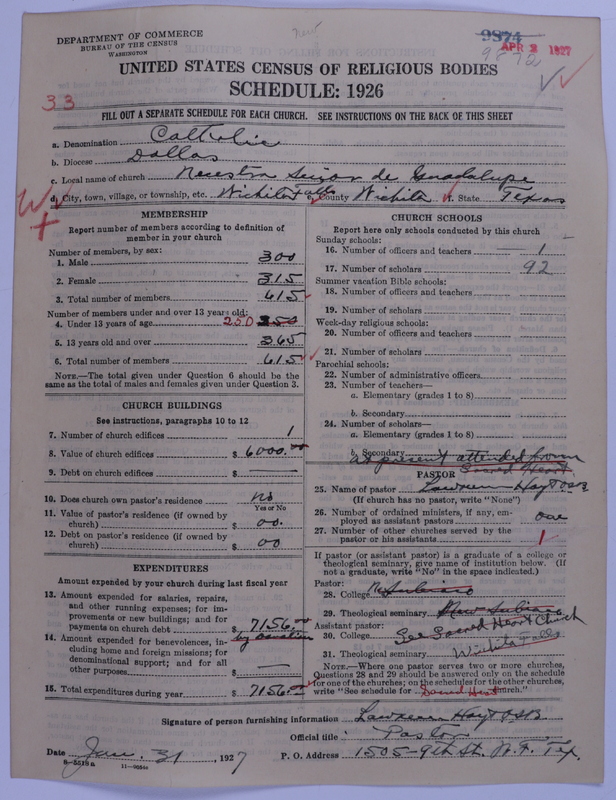 DEPARTMENT OF COMMERCE
BUREAU OF THE CENSUS
WASHINGTON
new
9874
APR 2 1927
9872
UNITED STATES CENSUS OF RELIGIOUS BODIES
SCHEDULE: 1926
33
FILL OUT A SEPARATE SCHEDULE FOR EACH CHURCH. SEE INSTRUCTIONS ON THE BACK OF THIS SHEET
a. Denomination Catholic
b. Diocese Dallas
c. Local name of church de Guadalupe
d. City, town, village, or township, etc. Wichita Falls e. County Wichita f. State Texas
MEMBERSHIP
Report number of members according to definition of
member in your church
Number of members, by sex:
1. Male 300
2. Female 315
3. Total number of members 615
Number of members under and over 13 years old:
4. Under 13 years of age 250 350
5. 13 years old and over 365
6. Total number of members 615
NOTE.—The total given under Question 6 should be the
same as the total of males and females given under Question 3.
CHURCH BUILDINGS
See instructions, paragraphs 10 to 12
7. Number of church edifices 1
8. Value of church edifices $ 6000.00
9. Debt on church edifices $ —
10. Does church own pastor's residence No
Yes or No
11. Value of pastor's residence (if owned by
church) $ 00.
12. Debt on pastor's residence (if owned by
church) $ 00
EXPENDITURES
Amount expended by your church during last fiscal year
13. Amount expended for salaries, repairs,
and other running expenses; for im-
provements or new buildings; and for
payments on church debt $ 7156.00
14. Amount expended for benevolences, in-
cluding home and foreign missions; for
denominational support; and for all
other purposes $ —
15. Total expenditures during year $ 7156.00
CHURCH SCHOOLS
Report here only schools conducted by this church
Sunday schools:
16. Number of officers and teachers 1
17. Number of scholars 92
Summer vacation Bible schools:
18. Number of officers and teachers
19. Number of scholars
Week-day religious schools:
20. Number of officers and teachers
21. Number of scholars
Parochial schools:
22. Number of administrative officers
23. Number of teachers—
a. Elementary (grades 1 to 8)
b. Secondary
24. Number of scholars—
a. Elementary (grades 1 to 8)
b. Secondary
at present attended from
Sacred Heart
PASTOR
25. Name of pastor
(If church has no pastor, write "None")
26. Number of ordained ministers, if any, em-
ployed as assistant pastors one
27. Number of other churches served by the
pastor or his assistants 1
If pastor (or assistant pastor) is a graduate of a college or
theological seminary, give name of institution below. (If
not a graduate, write "No" in the space indicated.)
Pastor:
28. College Subiaco
29. Theological seminary New Subiaco
Assistant pastor:
30. College See Sacred Heart Church
31. Theological seminary Wichita Falls
NOTE.—Where one pastor serves two or more churches,
Questions 28 and 29 should be answered only on the schedule
for one of the churches; on the schedules for the other churches,
write "See schedule for Sacred Heart church."
Signature of person furnishing information
Official title Pastor
Date Jan. 31, 1927
P. O. Address 1505-9th St. W. F. Tex.
8-5518a 11-9664